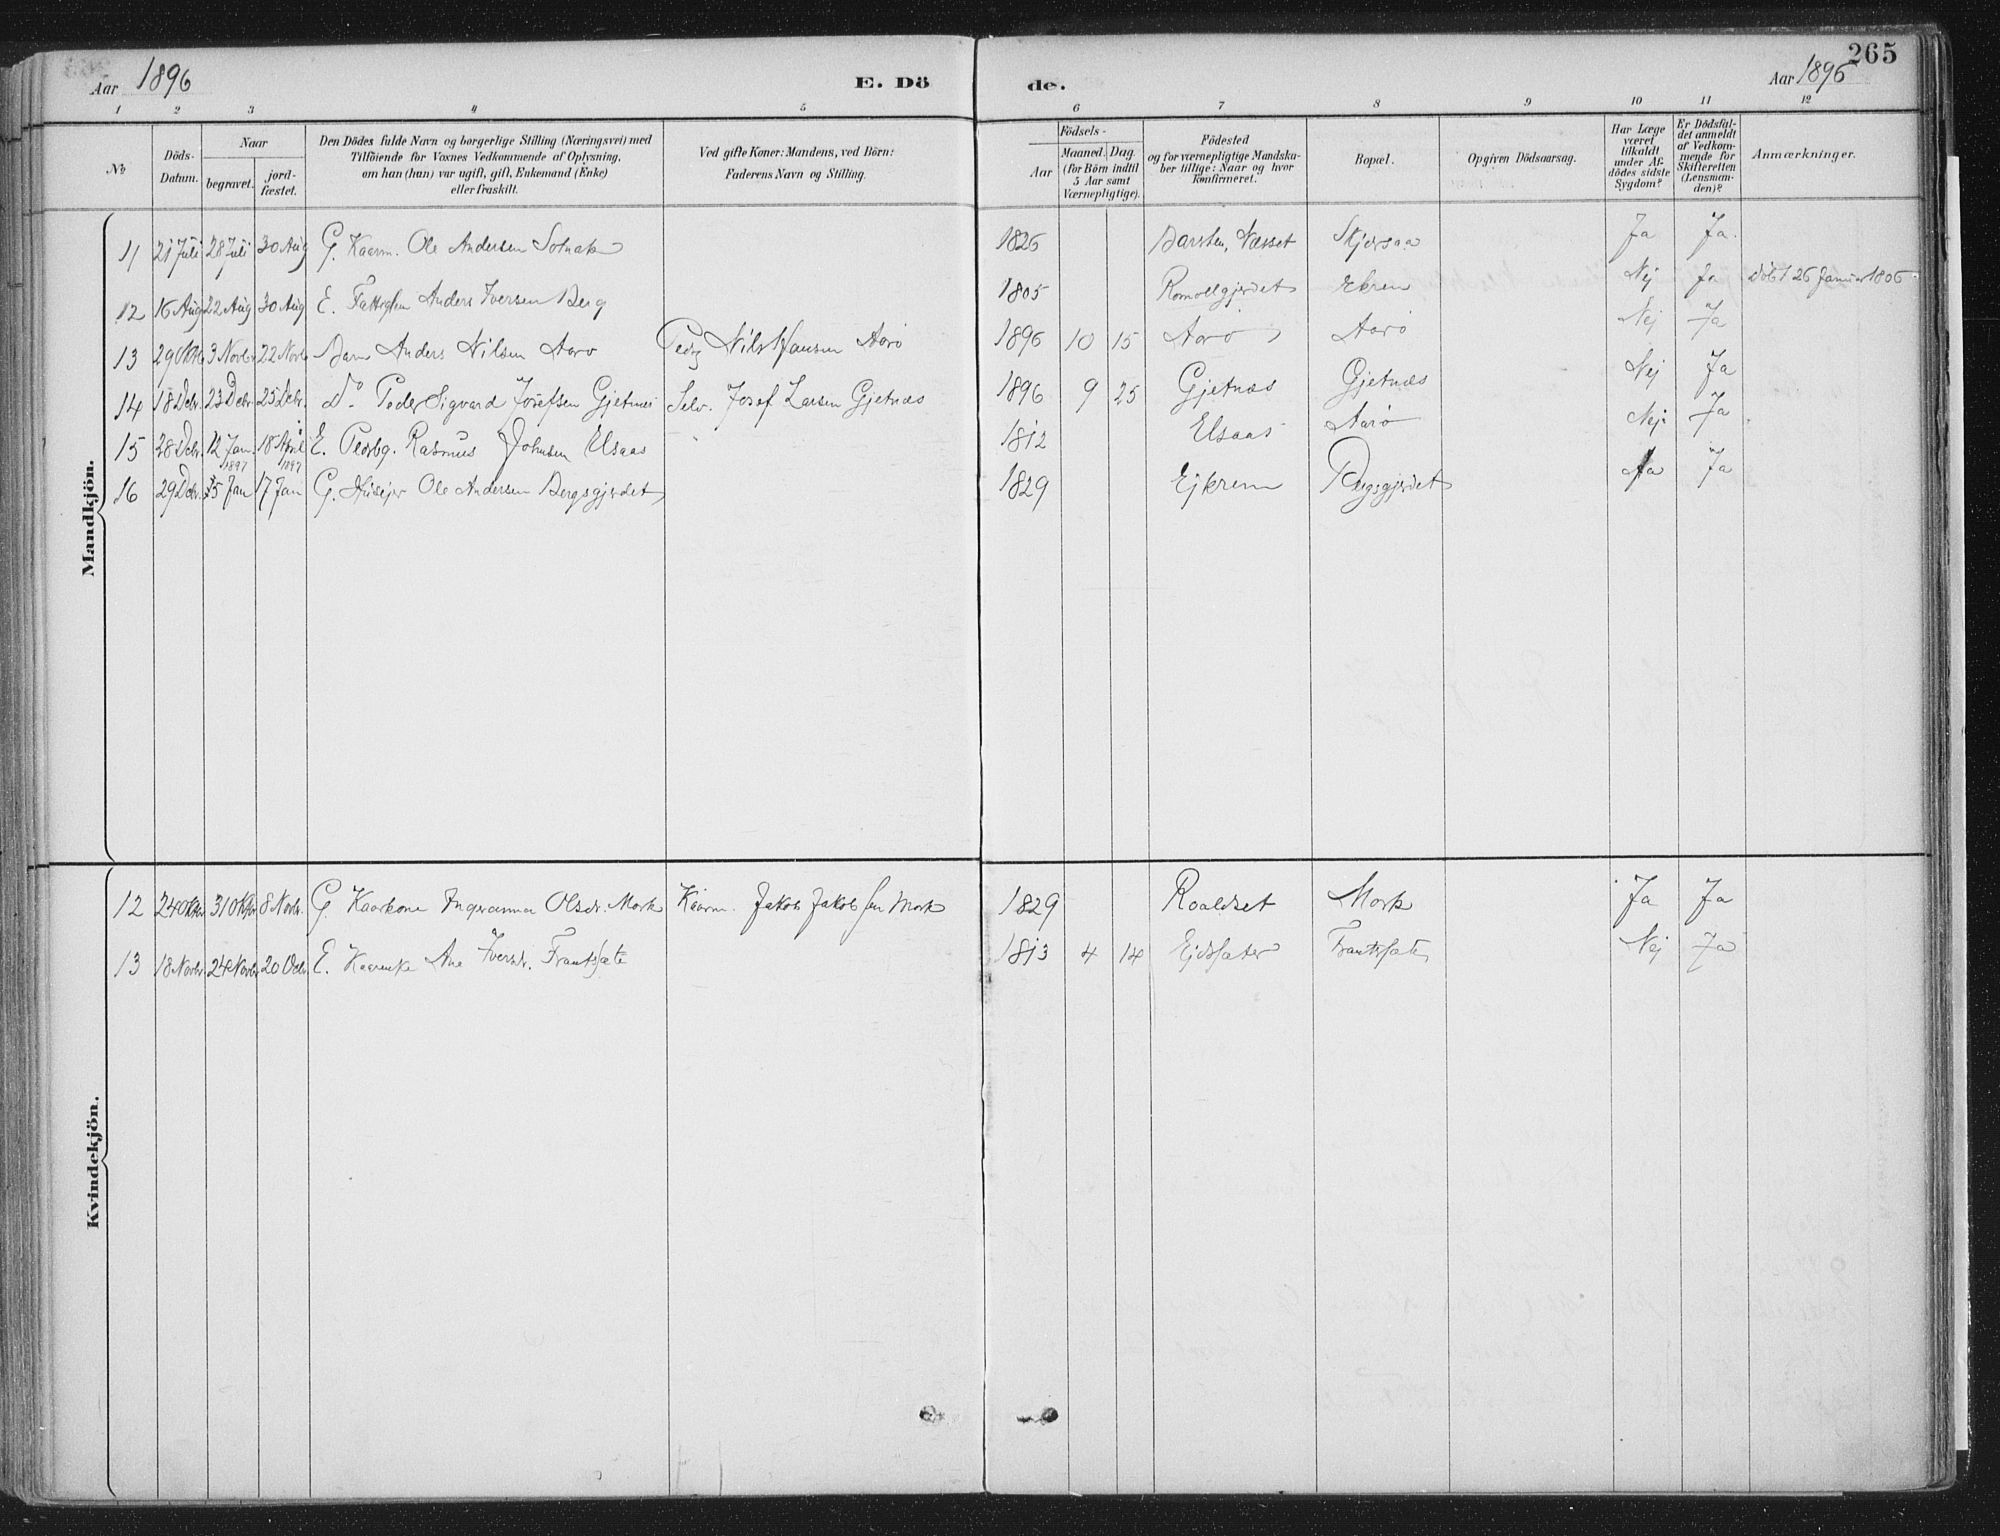 265
Aar 1896 E. Dö de. Aar 1896
1 2 3 4 5 6 7 8 9 10 11 12
№
Döds-Datum.
Naar
begravet.
jord-fæstet.
Den Dödes fulde Navn og borgerlige Stilling (Næringsvei) med
Tilföiende for Voxnes Vedkommende af Oplysning,
om han (hun) var ugift, gift, Enkemand (Enke)
eller fraskilt.
Ved gifte Koner: Mandens, ved Börn:
Faderens Navn og Stilling.
Födsels-
Aar
Maaned. Dag
(for Börn indtil
5 Aar samt
Værnepligtige).
Födested
og for værnepligtige Mandska-
ber tillige: Naar og hvor
konfirmeret.
Bopæl.
Opgiven Dödsaarsag.
Har Læge
været
tilkaldt
under Af-
dödes sidste
Sygdom?
Er Dödsfal-
det anmeldt
af Vedkom-
mende for
Skifteretten
(Lensman-
den)?
Anmærkninger.
Mandkjön.
11 21 Juli 28 Juli 30 Aug G. Kaarm. Ole Andersen Solnak 1826 Barsten, Næsset Ja Ja.
12 16 Aug 22 Aug 30 Aug E. Anders Iversen Berg 1805 Ekrem Nej Ja Döbt 26 Januar 1806
13 29 3 Novbr 22 Novbr Barn Anders Nilsen Aarø Nils Hansen Aarø 1896 10 15 Aarø Aarø Nej Ja
14 18 Debr. 23 Debr. 25 Debr. Do Peder Sigvard Josefsen Gjetnæs Selv. Josef Larsen Gjetnæs 1896 9 25 Gjetnæs Gjetnæs Nej Ja
15 28 Debr. 12 Jan. 1897 18 April 1897 E. Rasmus Johnsen Elsaas 1812 Elsaas Aarø Nej Ja
16 29 Debr. 5 Jan 17 Jan G. Husejer Ole Andersen Bergsgjerdet 1829 Ejkrem Bergsgjerdet Ja Ja
Kvindekjön.
12 24 Oktbr 31 Oktbr 8 Novbr. G. Kaarkone Ingeranna Olsdr. Mork Kaarm. Jakob Jakobsen Mork 1829 Roaldset Mork Ja Ja
13 18 Novbr 24 Novbr 20 E. Kaarenke Ane Iversdr. Frantsæte 1813 4 14 Ejdsæter Frantsæte Nej Ja